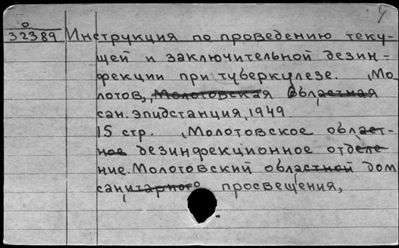 о
32389 Инструкция по проведению теку-
щей и заключительной дезин=
фекции при туберкулезе. Мо
лотов, Молотовская областная
сан. эпидстанция, 1949.
15 стр. Молотовское област-
ное дезинфекционное отделе
ние. Молотовский областной дом
санитарного просвещения,